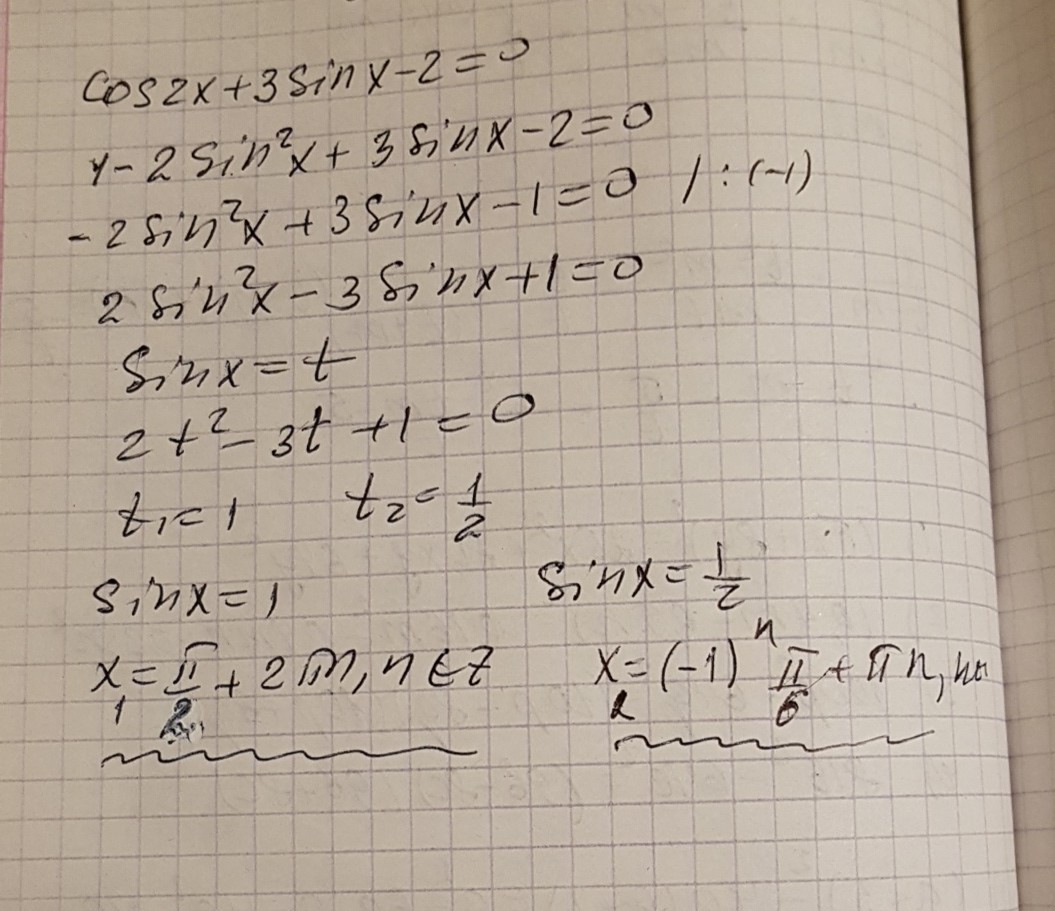 cos2x+3sinx-2=0
1-2sin²x+3sinx-2=0
-2sin²x+3sinx-1=0 /:(-1)
2sin²x-3sinx+1=0
sinx=t
2t²-3t+1=0
t₁=1 t₂=1/2
sinx=1 sinx=1/2
x₁=π/2+2πn, n∈Z x₂=(-1)ⁿ π/6+πn,